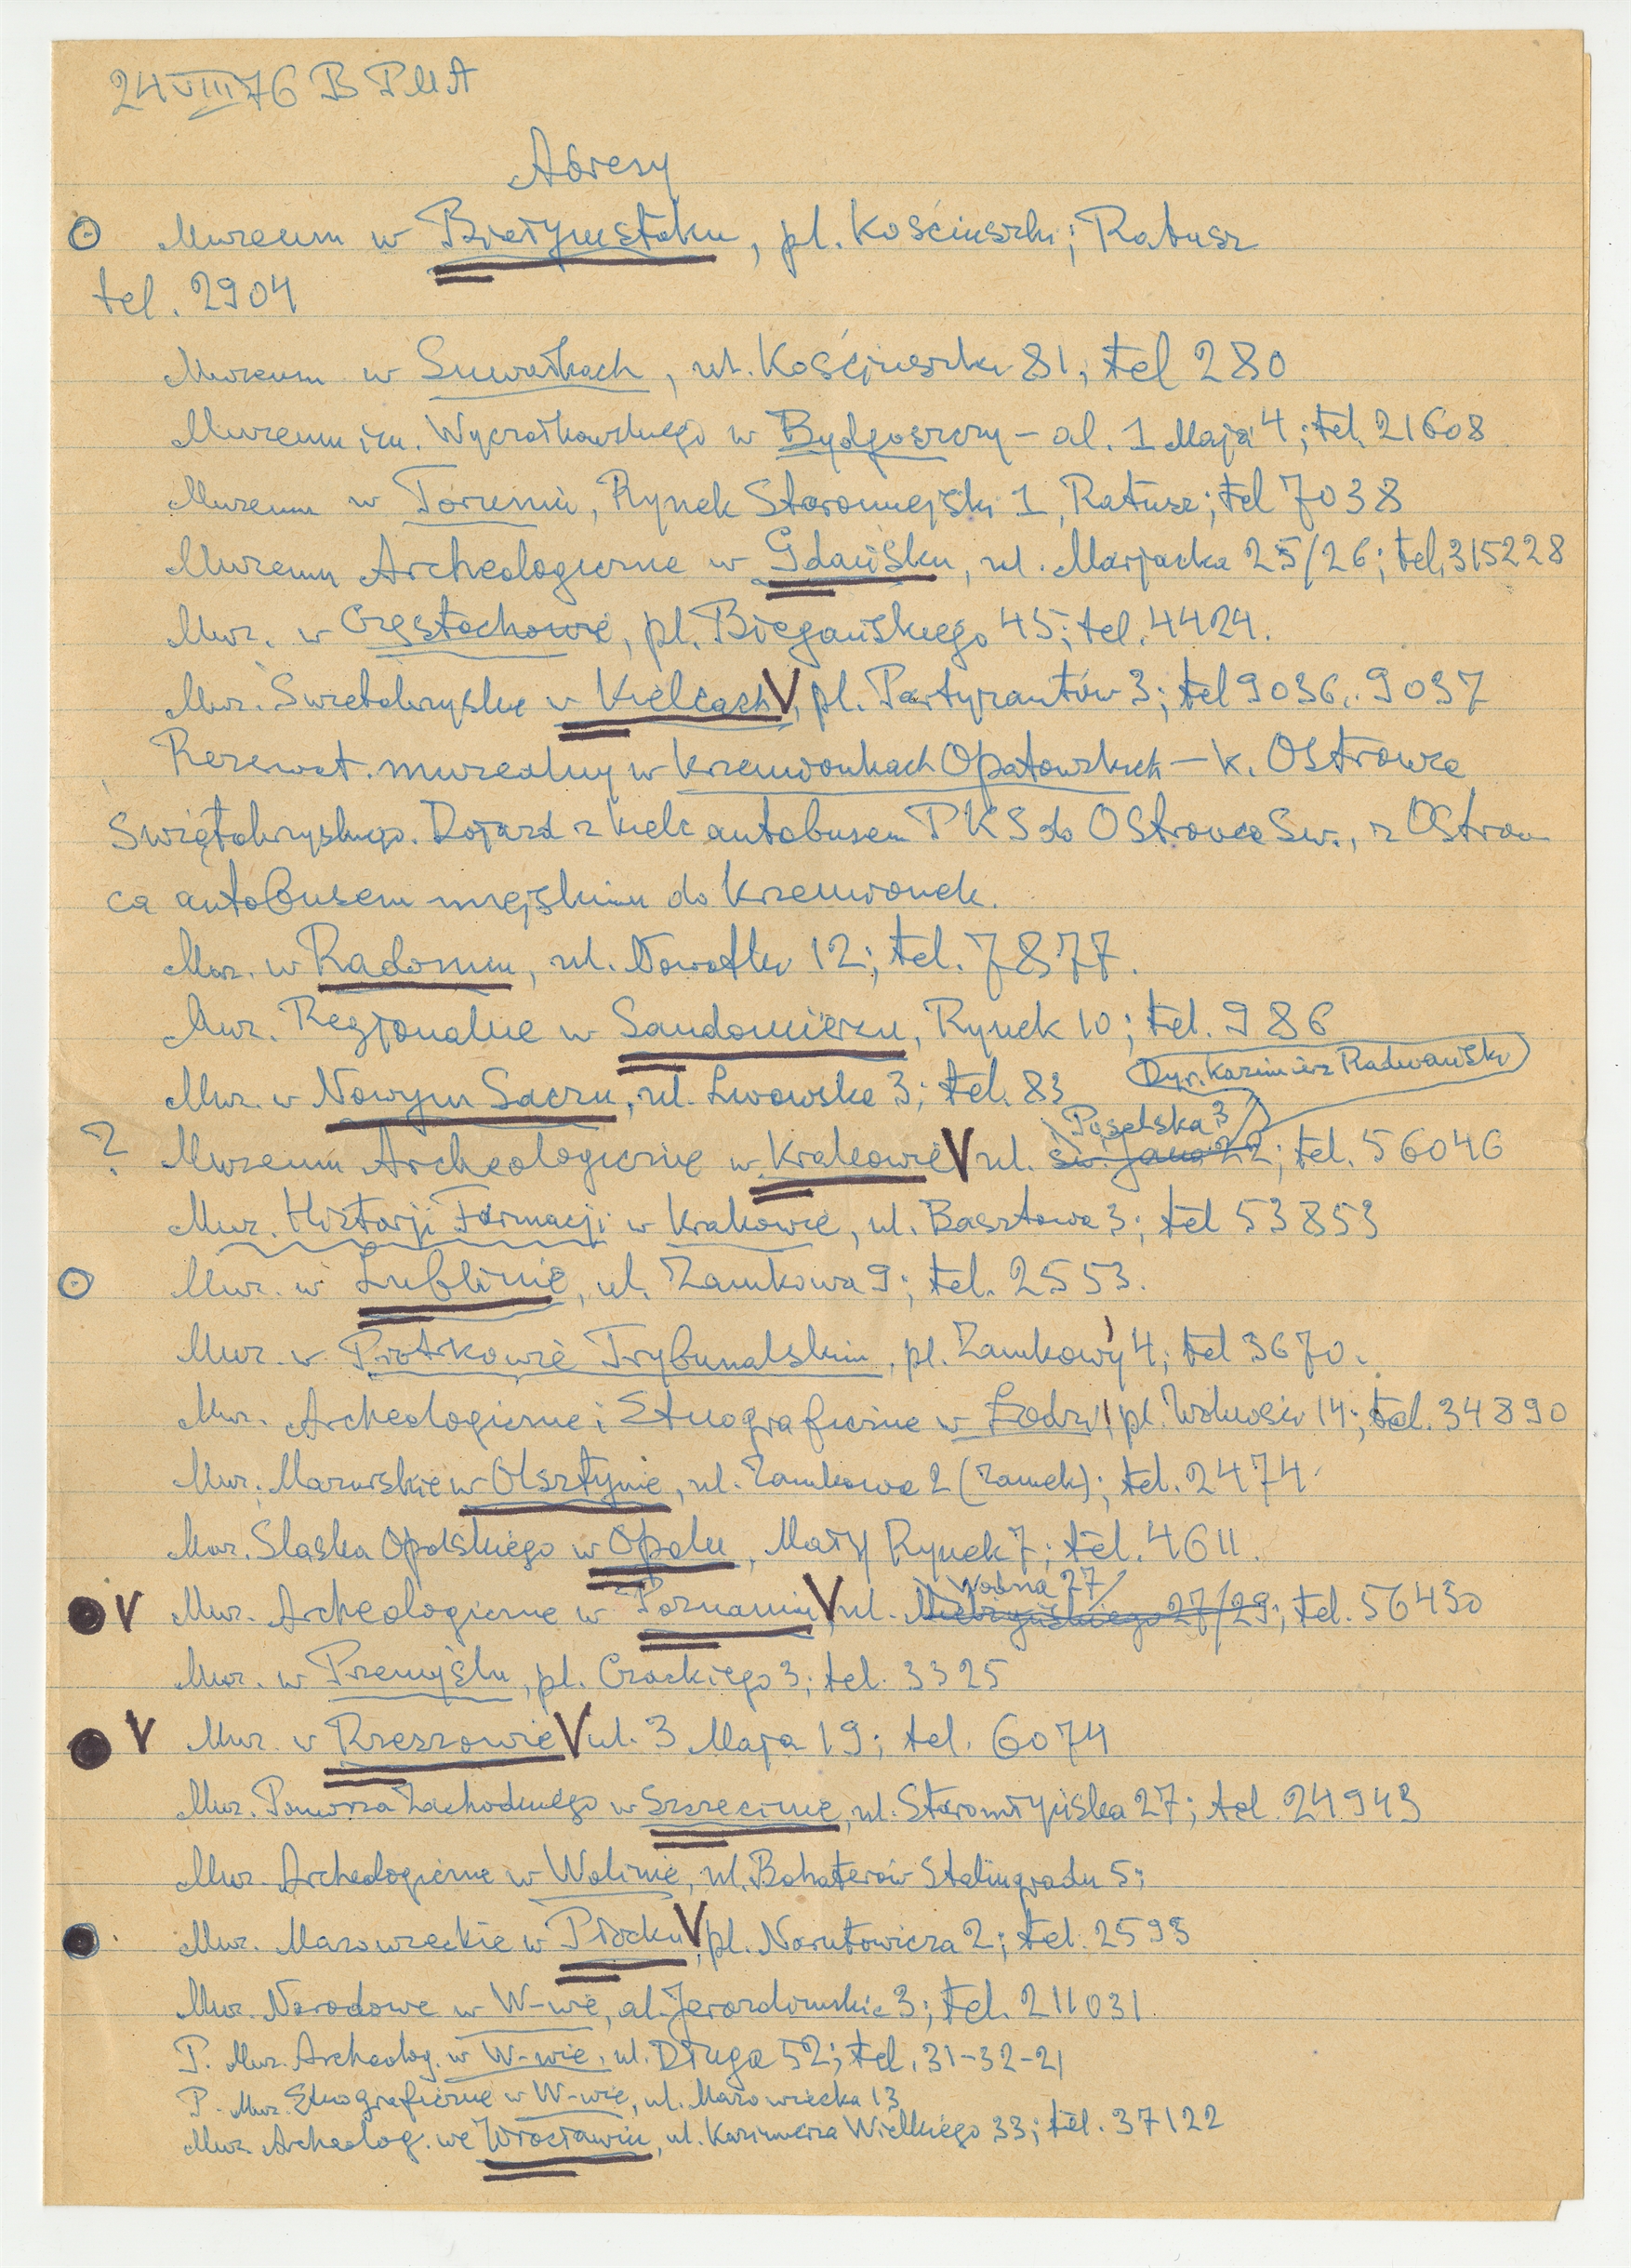 24 VIII 76 B PMA
Adresy
Muzeum w Białymstoku, pl. Kościuszki; Ratusz
tel. 2904
Muzeum w Suwałkach, ul. Kościuszki 81; tel 280
Muzeum im. Wyczółkowskiego w Bydgoszczy – al. 1 Maja 4; tel. 21608
Muzeum w Toruniu, Rynek Staromiejski 1, Ratusz; tel 7038
Muzeum Archeologiczne w Gdańsku, ul. Mariacka 25/26; tel. 315228
Muz. w Częstochowie, pl. Biegańskiego 45; tel. 4424.
Muz. Świętokrzyskie w Kielcach V, pl. Partyzantów 3; tel 9036, 9037
Rezerwat muzealny w Krzemionkach Opatowskich – k. Ostrowca
Świętokrzyskiego. Dojazd z Kielc autobusem PKS do Ostrowca Św., z Ostrow
ca autobusem miejskim do Krzemionek.
Muz. w Radomiu, ul. Nowotki 12; tel. 7877.
Muz. Regionalne w Sandomierzu, Rynek 10; tel. 986
Dyr. Kazimierz Radwański
Muz. w Nowym Sączu, ul. Lwowska 3; tel. 83
Poselska 3
? Muzeum Archeologiczne w Krakowie V ul. św. Jana 22; tel. 56046
Muz. Historji Farmacji w Krakowie, ul. Basztowa 3; tel 53853
Muz. w Lublinie, ul. Zamkowa 9; tel. 2553.
Muz. w Piotrkowie Trybunalskim, pl. Zamkowy 4; tel 3670.
Muz. Archeologiczne i Etnograficzne w Łodzi, pl. Wolności 14; tel. 34890
Muz. Mazurskie w Olsztynie, ul. Zamkowa 2 (Zamek); tel. 2474
Muz. Śląska Opolskiego w Opolu, Mały Rynek 7; tel. 4611.
Wodna 27
V Muz. Archeologiczne w Poznaniu V, ul. 27/29; tel. 56430
Muz. w Przemyślu, pl. Czackiego 3; tel. 3325
V Muz. w Rzeszowie V ul. 3 Maja 19; tel. 6074
Muz. Pomorza Zachodniego w Szczecinie, ul. Staromłyńska 27; tel. 24943
Muz. Archeologiczne w Wolinie, ul. Bohaterów Stalingradu 5;
Muz. Mazowieckie w Płocku V, pl. Narutowicza 2; tel. 2595
Muz. Narodowe w W-wie, al. Jerozolimskie 3; tel. 211031.
P. Muz. Archeolog. w W-wie, ul. Długa 52; tel. 31-32-21
P. Muz. Etnograficzne w W-wie, ul. Mazowiecka 13
Muz. Archeolog. we Wrocławiu, ul. Kazimierza Wielkiego 33; tel. 37122